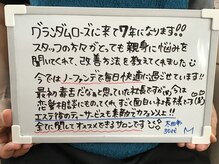 グランダムローズに来て7年になります!!
スタッフの方々がとっても親身に悩みを
聞いてくれて、改善方法を教えてくれます!!
今ではノーファンデで毎日快適に過ごせています!!
最初毒舌だなぁと思っていた社長さんも今は
恋愛相談にものってくれ、すごく面白い社長様です(笑)
エステ後のティーサービスも素敵でウフンッよ!!
全てに関してオススメできるサロンです♡
30代 M